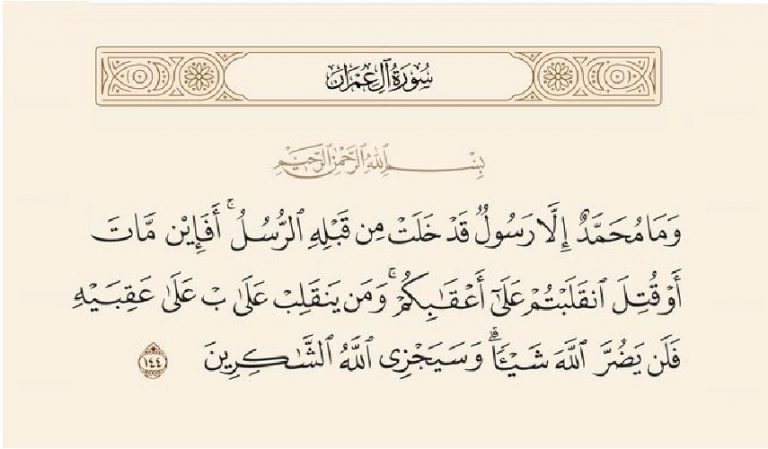 سُورَةُ آلِ عِمْرَانَ
بِسْمِ ٱللَّهِ ٱلرَّحْمَٰنِ ٱلرَّحِيمِ
وَمَا مُحَمَّدٌ إِلَّا رَسُولٌ قَدْ خَلَتْ مِن قَبْلِهِ ٱلرُّسُلُ ۚ أَفَإِيْن مَّاتَ
أَوْ قُتِلَ ٱنقَلَبْتُمْ عَلَىٰٓ أَعْقَٰبِكُمْ ۚ وَمَن يَنقَلِبْ عَلَىٰ بْ عَلَىٰ عَقِبَيْهِ
فَلَن يَضُرَّ ٱللَّهَ شَيْـًٔا ۗ وَسَيَجْزِى ٱللَّهُ ٱلشَّٰكِرِينَ ١٤٤